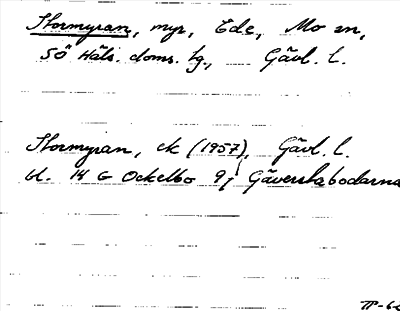 Stormyran, myr, Ede, Mo sn,
SÖ Häls. doms. tg., Gävl. l.
Stormyran, ek (1957), Gävl. l.
bl. 14 G Ockelbo 9j Gäverskabodarna